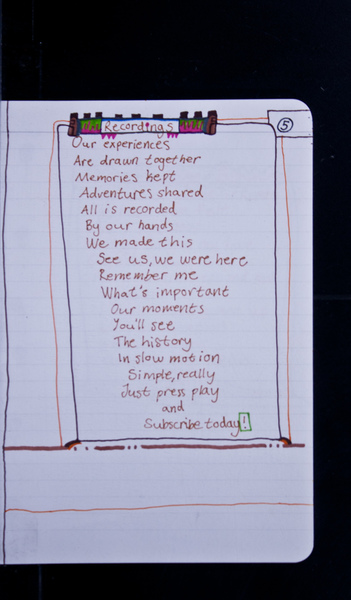 Recordings
5
Our experiences
Are drawn together
Memories kept
Adventures shared
All is recorded
By our hands
We made this
See us, we were here
Remember me
What's important
Our moments
You'll see
The history
In slow motion
Simple, really
Just press play
and
Subscribe today!